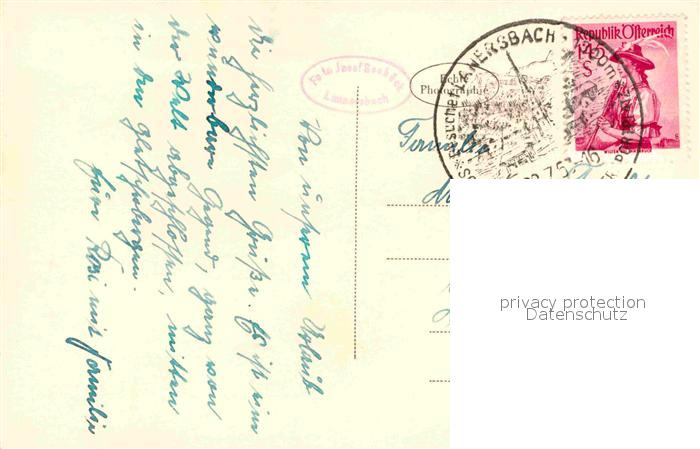 Von unserem Urlaub
die herzlichsten Grüße. Es ist eine
wunderbare Gegend, ganz von
der Welt abgeschlossen, mitten
in den Gletscherbergen.
Eure Rosi mit Familie
Foto Josef
Lannersbach
Echte
Photographie
NERSBACH
7.53-16
Republik Österreich
Familie
privacy protection
Datenschutz